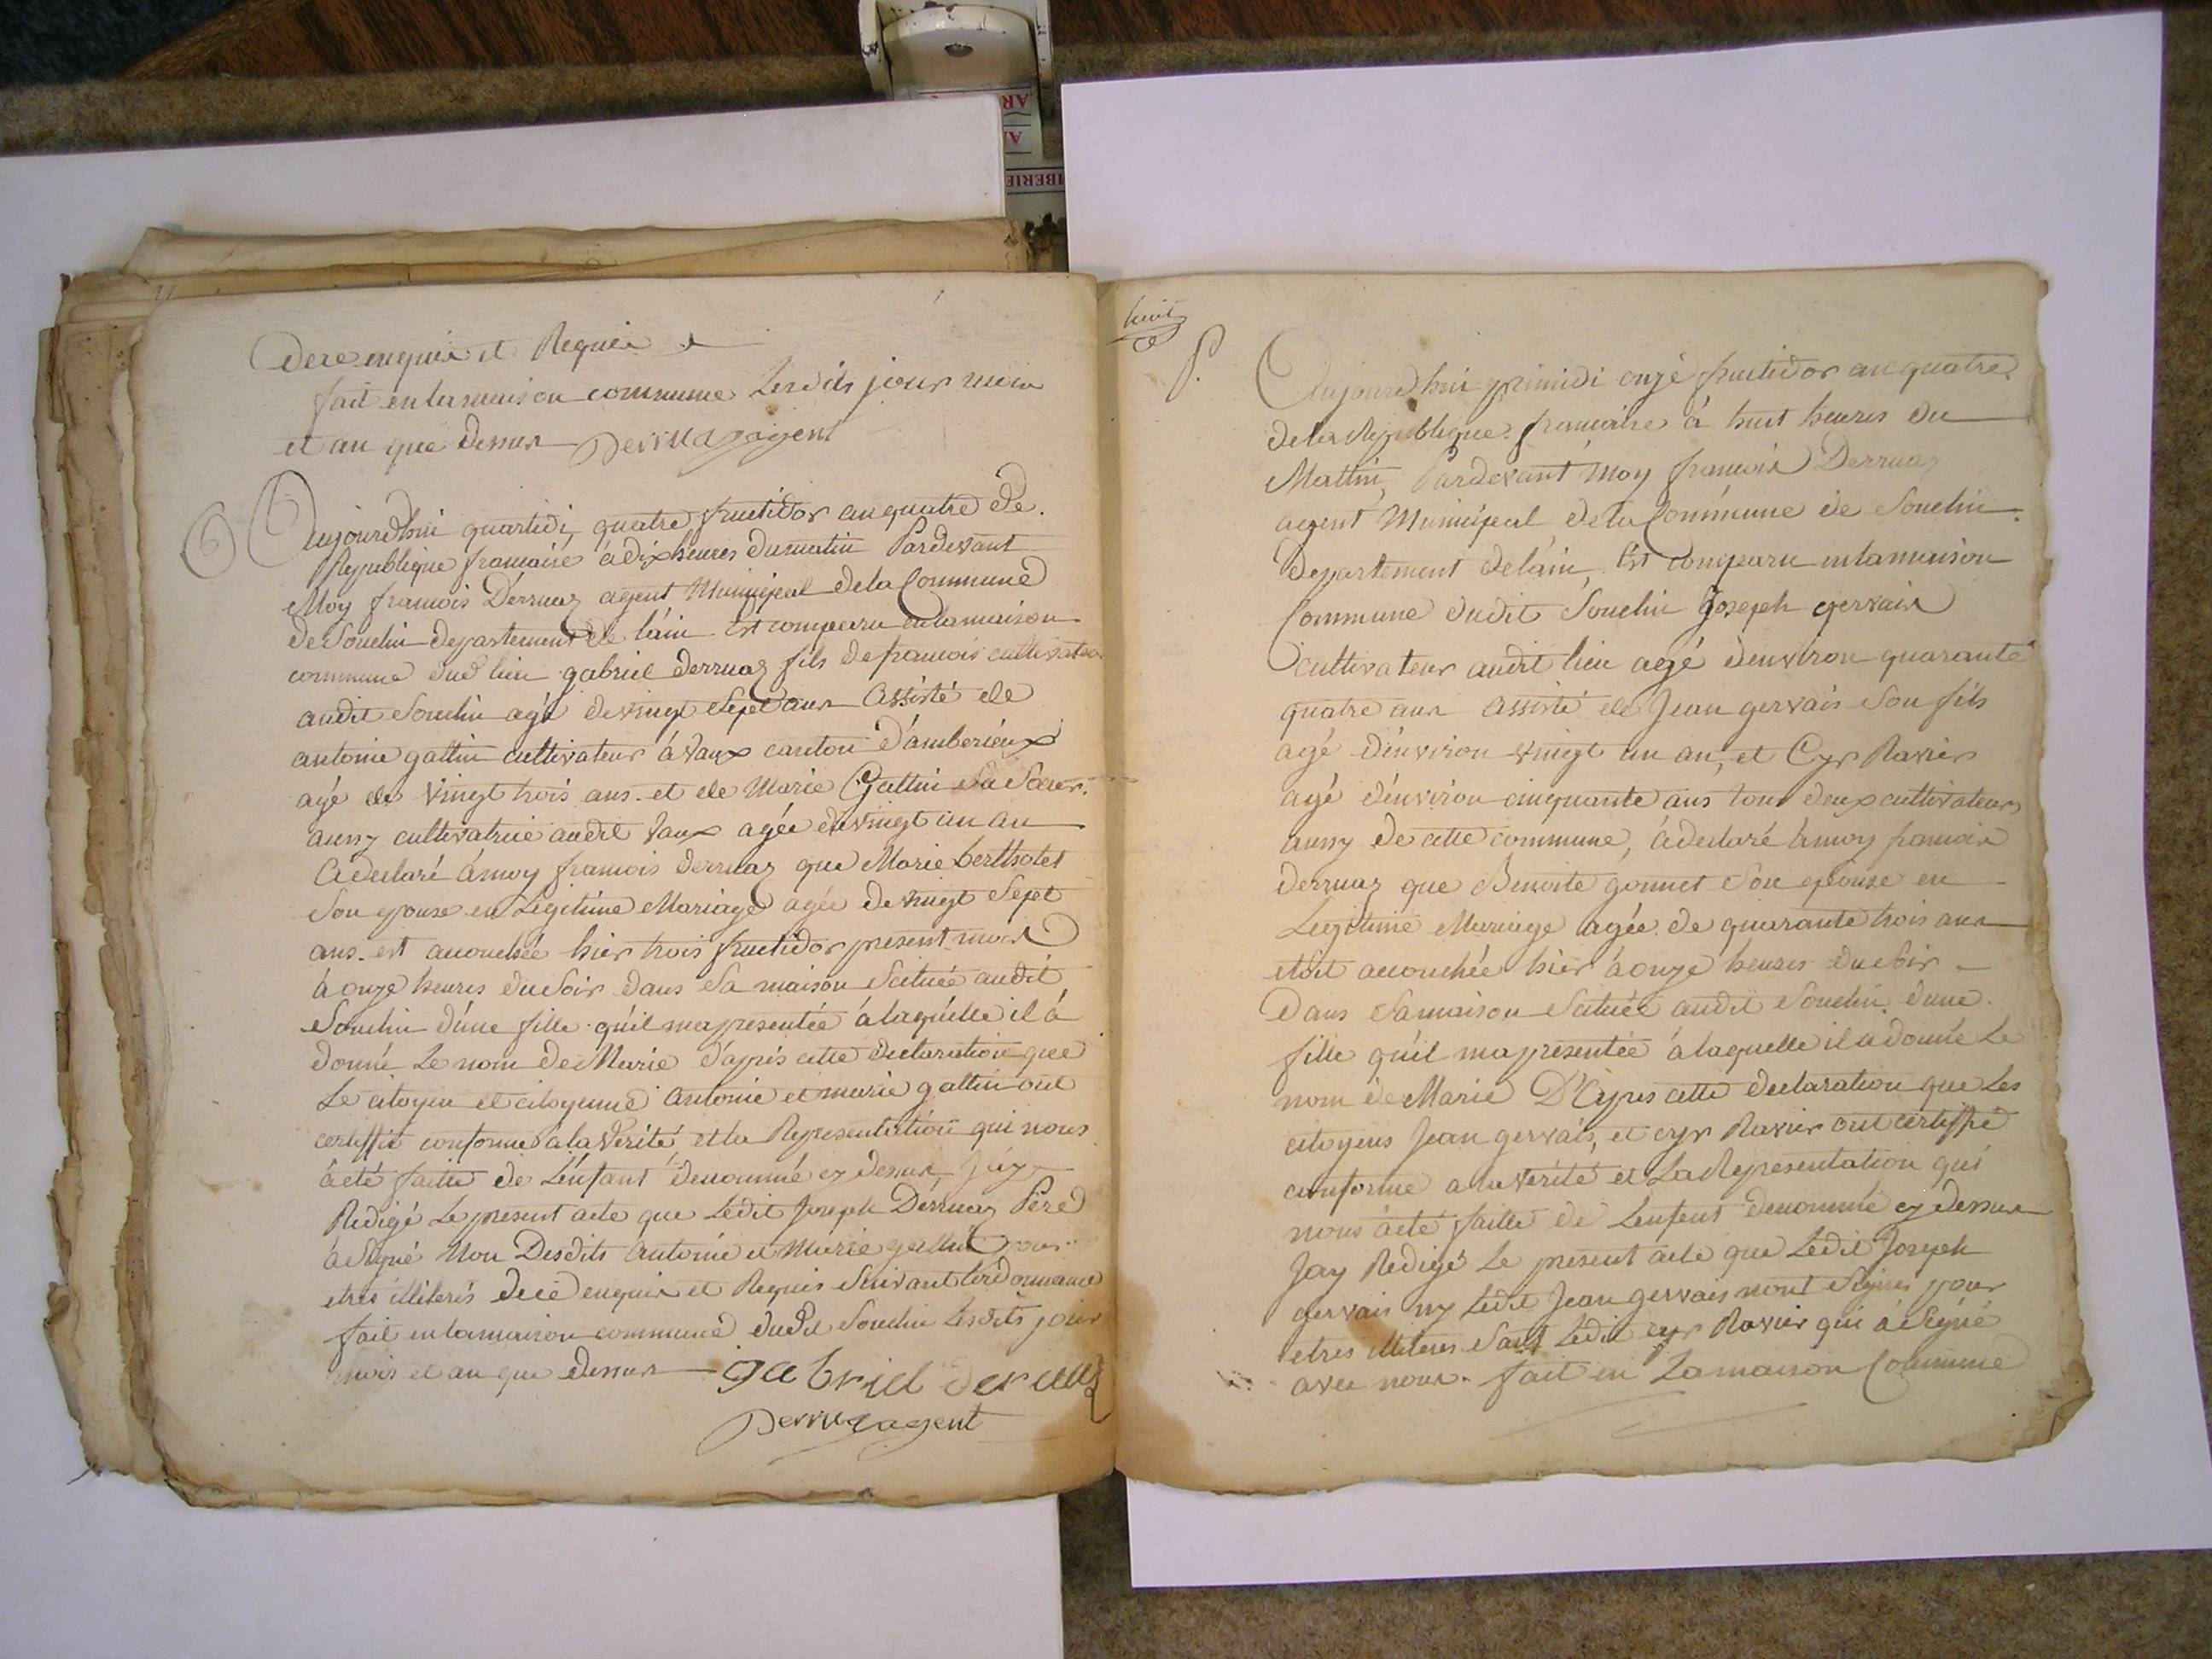 dece enquis et Requis
fait en la maison commune Lesdits jour mois
et an que dessus Derruaz agent
6
Aujourdhui quartidi, quatre fructidor an quatre de
Republique francoise à dix heures du matin Pardevant
Moy francois Derruaz agent Municipal de la Commune
de Souclin departement de lain Est comparu en la maison
commune dud lieu gabriel derruaz fils de francois cultivateur
audit Souclin agé de vingt Sept ans Assisté de
antoine gallin cultivateur à Vaux canton d'amberieux
agé de vingt trois ans et de Marie Gallin Sa Soeur
aussy cultivatrice audit Vaux agée de vingt un an
à declaré à moy francois derruaz que Marie bertholet
Son epouse en Legitime Mariage agée de vingt Sept
ans est accouchée hier trois fructidor present mois
à onze heures du Soir dans Sa maison Scituée audit
Souclin d'une fille qu'il ma presentée à laquelle il à
donné Le nom de Marie d'apres cette declaration que
Le citoyen et citoyenne Antoine et marie gallin ont
certiffié conforme à la Verité, et la Representation qui nous
à eté faitte de L'enfant denommé cy dessus, jay
Redigé Le present acte que Ledit Joseph Derruaz Pere
à Signé Non Desdits Antoine et Marie gallin pour
etres illiterés de ce enquis et Requis Suivant lordonnance
fait en la maison commune dudit Souclin Lesdits jour
mois et an que dessus gabriel deruaz
Derruaz agent
huit
P.
Aujourdhui primidi onze fructidor an quatre
de la Republique francoise à huit heures du
Mattin, Pardevant moy francois Derruaz
agent Municipal de la Commune de Souclin
Departement de lain, Est comparu en la maison
Commune dudit Souclin Joseph gervais
cultivateur audit lieu agé denviron quarante
quatre ans assisté de Jean gervais Son fils
agé d'environ vingt un an, et Cyr Ravier
agé d'environ cinquante ans tous deux cultivateurs
aussy de cette commune, à declaré à moy francois
derruaz que Benoite gonnet Son epouse en
Legitime Mariage agée de quarante trois ans
etoit accouchée hier à onze heures du Soir
dans Sa maison Scituée audit Souclin dune
fille qu'il ma presentée à laquelle il a donné Le
nom de Marie D'Apres cette declaration que Les
citoyens Jean gervais, et cyr Ravier ont certiffié
conforme a la verité et La Representation qui
nous à eté faitte de Lenfant denommé cy dessus
Jay Redigé Le present acte que Ledit Joseph
gervais ny Ledit Jean gervais nont Signés pour
etres illiteres Sauf Ledit cyr Ravier qui à Signé
avec nous. fait en La maison Commune